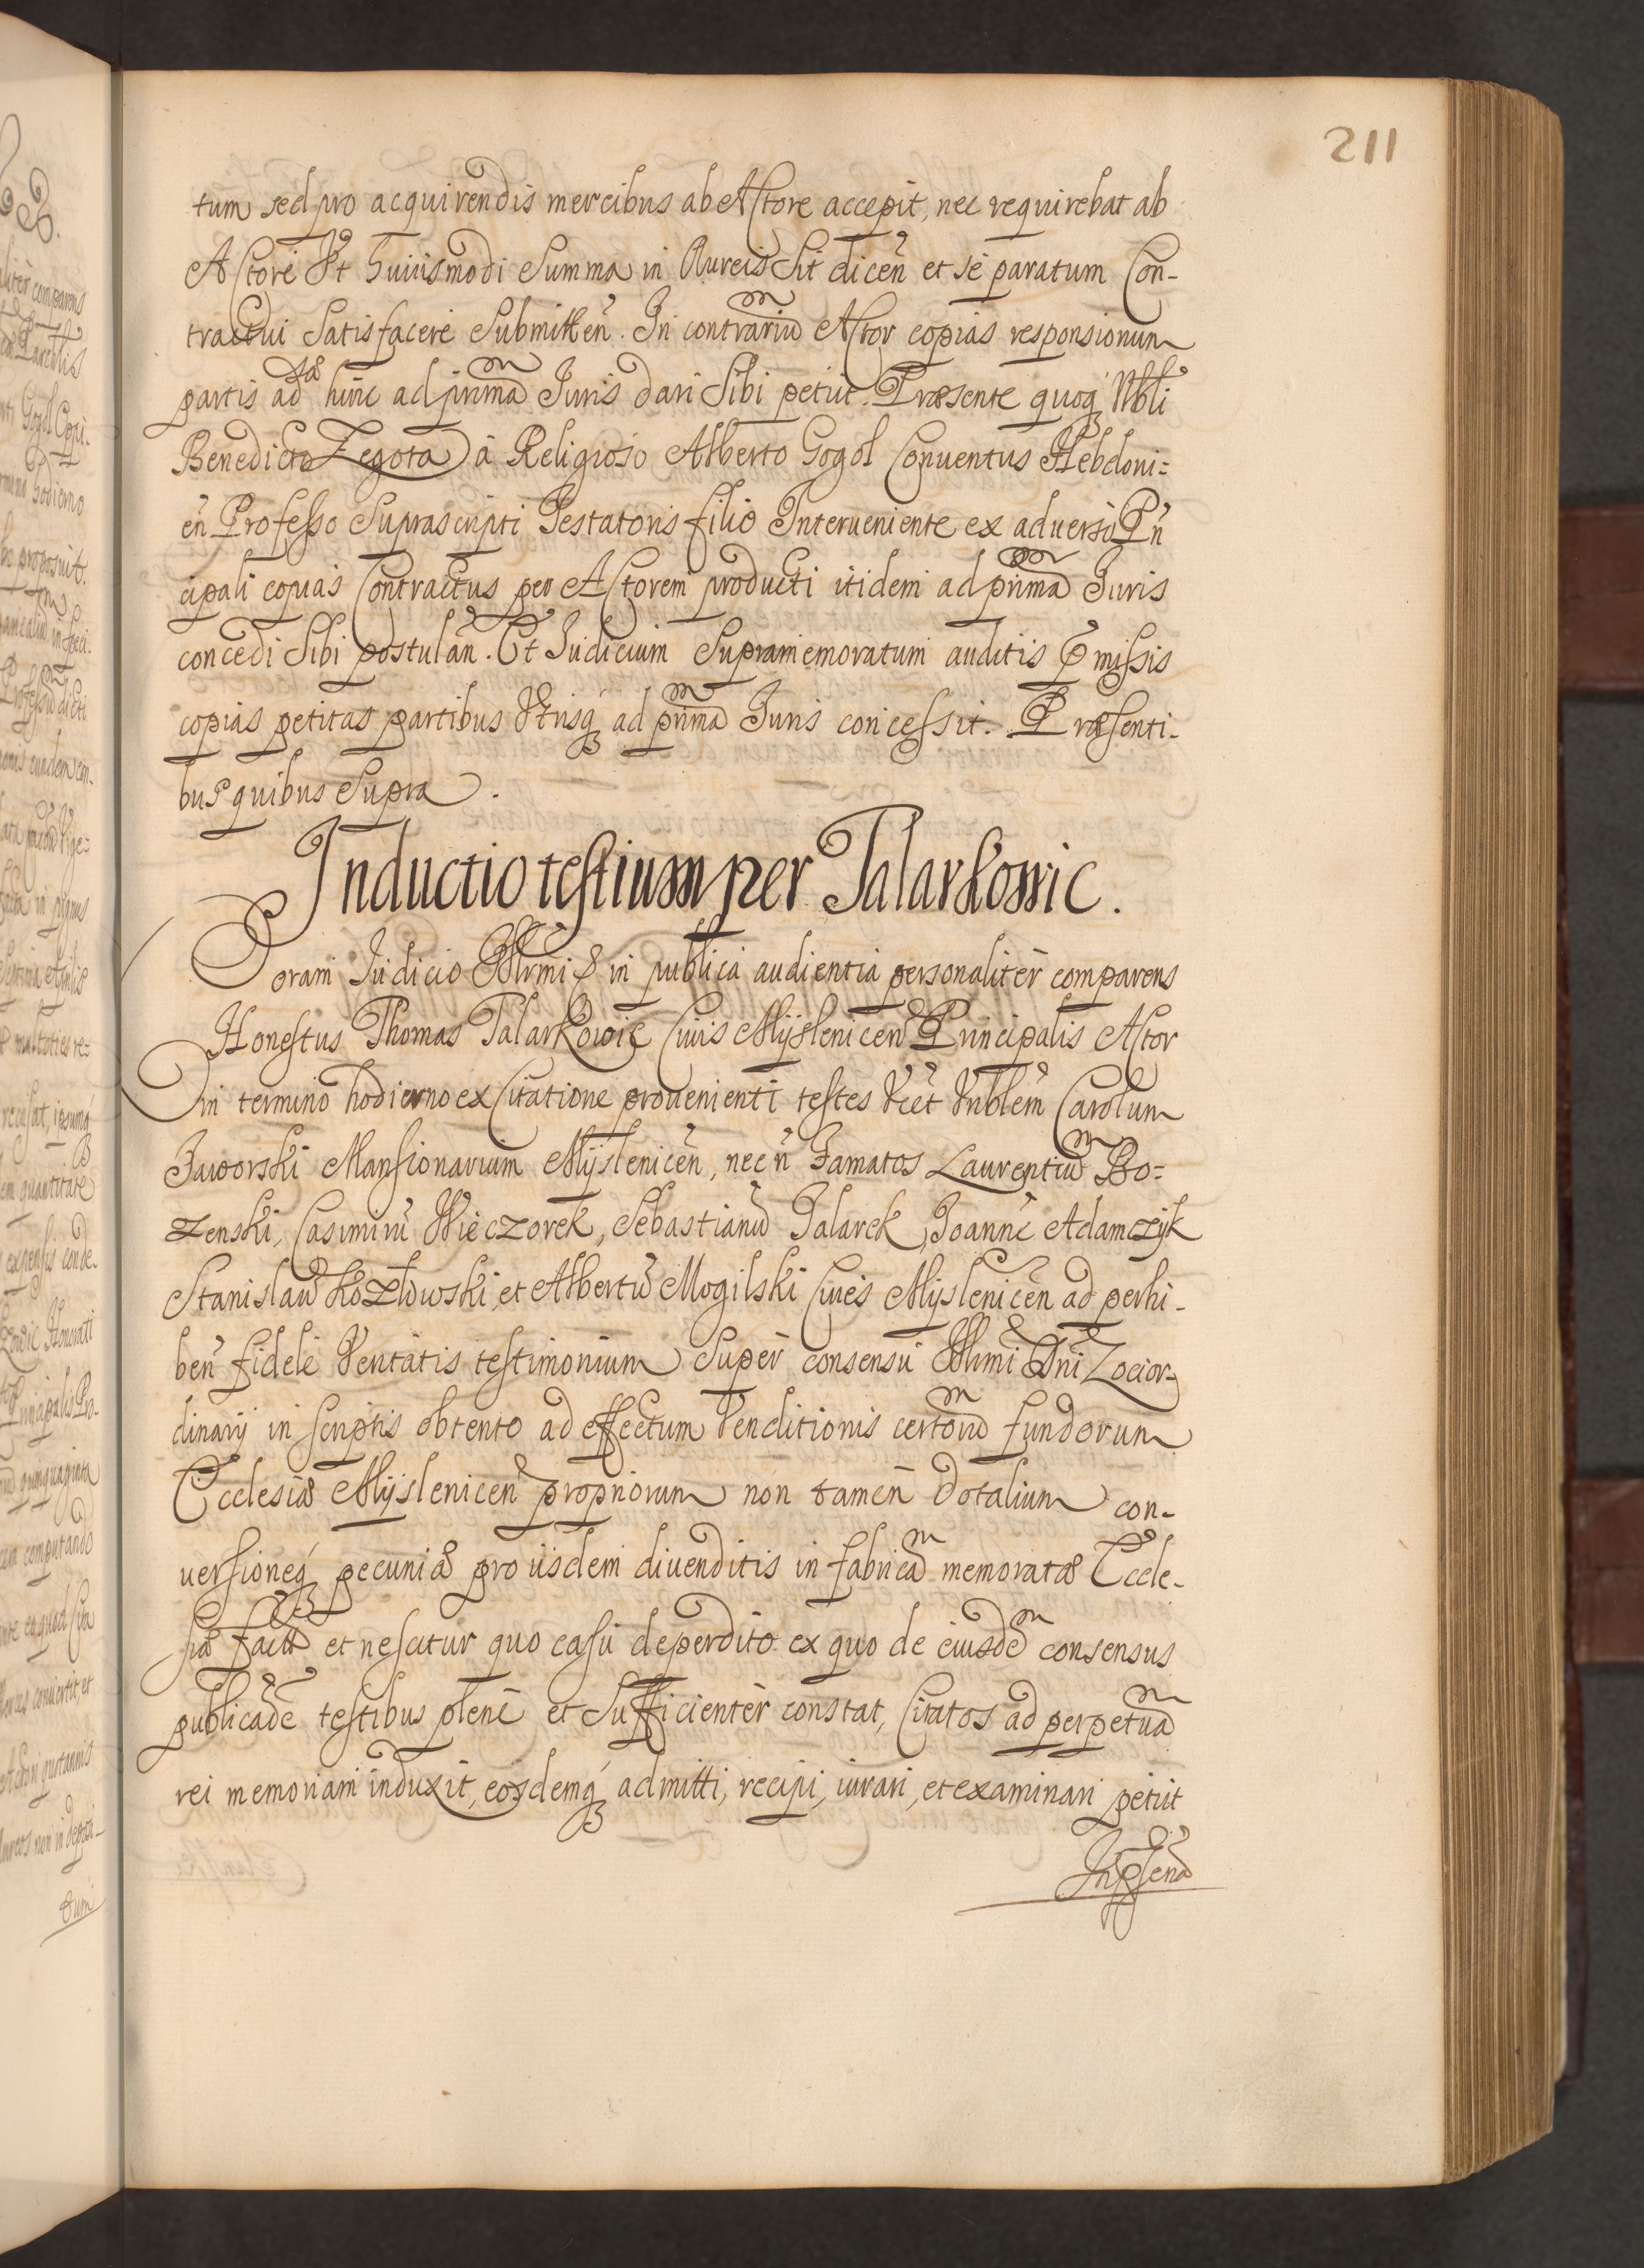 211
tum sed pro acquirendis mercibus ab Actore accepit, nec requirebat ab
Actore Ut huiusmodi Summa in Aureis Sit dicen̄ et se paratum Con-
tractui Satisfacere Submitten̄. In contrariū Actor copias responsionum
partis adæ hinc ad primā Iuris dari Sibi petiit. Præsente quoq́ Nbli
Benedicto Zegota à Religioso Alberto Gogol Conuentus Hebdoui=
en̄ Professo Suprascripti Testatoris filio Interueniente ex aduerso Prn̄
cipali copias Contractus per Actorem producti itidem ad primā Iuris
concedi Sibi postulan̄. Et Iudicium Supramemoratum auditis Pmissis
copias petitas partibus Utrisq́ ad primā Iuris concessit. Præsenti-
bus quibus Supra.
Inductio testium per Talarkowic.
Coram Iudicio Illrmi & in publica audientia personaliter comparens
Honestus Thomas Talarkowic Ciuis Myslenicen̄ Principalis Actor
in termino hodierno ex Citatione prouenienti testes Vēt Vnblem Carolum
Jaworski Mansionarium Myslenicen̄, necn̄ Famatos Laurentiū Bo=
zenski, Casimirū Wieczorek, Sebastianū Talarek, Joannē Adamczyk
Stanislaū Kozłowski, et Albertū Mogilski Ciues Myslenicen̄ ad perhi-
ben̄ fidele Veritatis testimonium Super consensu Illmi Dni Locior-
dinarij in scriptis obtento ad effectum Venditionis certorū fundorum
Ecclesiæ Myslenicen̄ propriorum non tamen dotalium con-
uersioneq́ pecuniæ pro iisdem diuenditis in fabricā memoratæ Eccle-
siæ et nescitur quo casu deperdito ex quo de eiusdē consensus
publicāde testibus plenè et Sufficienter constat, Citatos ad perpetuā
rei memoriam induxit, eosdemq́ admitti, recipi, iurari, et examinari petiit
In psenā